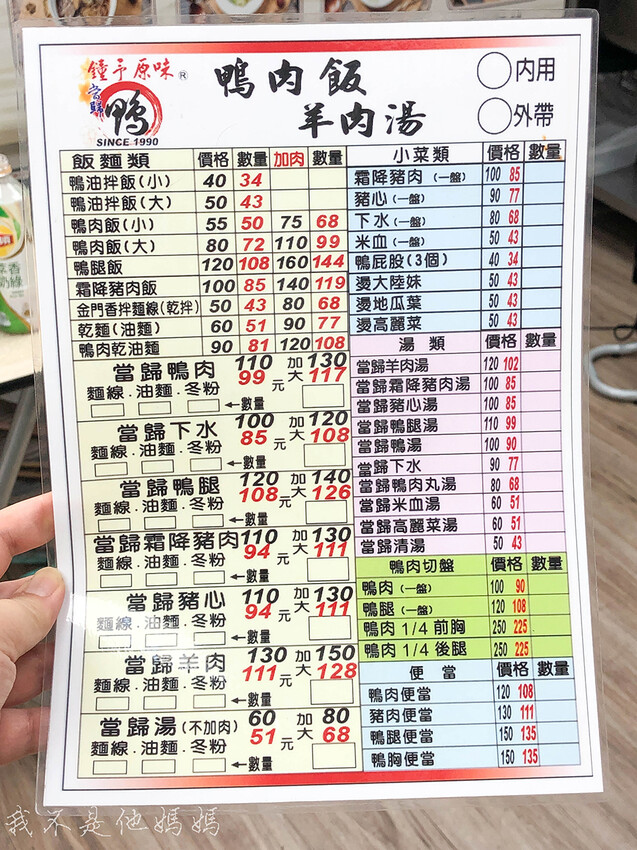 鐘予原味®
當歸
鴨
SINCE 1990
鴨肉飯
羊肉湯
○內用
○外帶
飯麵類 價格 數量 加肉 數量
鴨油拌飯(小) 40 34
鴨油拌飯(大) 50 43
鴨肉飯(小) 55 50 75 68
鴨肉飯(大) 80 72 110 99
鴨腿飯 120 108 160 144
霜降豬肉飯 100 85 140 119
金門香拌麵線(乾拌) 50 43 80 68
乾麵(油麵) 60 51 90 77
鴨肉乾油麵 90 81 120 108
當歸鴨肉 110 99 元 加大 130 117
麵線.油麵.冬粉 ←數量
當歸下水 100 85 元 加大 120 108
麵線.油麵.冬粉 ←數量
當歸鴨腿 120 108 元 加大 140 126
麵線.油麵.冬粉 ←數量
當歸霜降豬肉 110 94 元 加大 130 111
麵線.油麵.冬粉 ←數量
當歸豬心 110 94 元 加大 130 111
麵線.油麵.冬粉 ←數量
當歸羊肉 130 111 元 加大 150 128
麵線.油麵.冬粉 ←數量
當歸湯(不加肉) 60 51 元 加大 80 68
麵線.油麵.冬粉 ←數量
小菜類 價格 數量
霜降豬肉(一盤) 100 85
豬心(一盤) 90 77
下水(一盤) 80 68
米血(一盤) 50 43
鴨屁股(3個) 40 34
燙大陸妹 50 43
燙地瓜葉 50 43
燙高麗菜 50 43
湯類 價格 數量
當歸羊肉湯 120 102
當歸霜降豬肉湯 100 85
當歸豬心湯 100 85
當歸鴨腿湯 110 99
當歸鴨湯 100 90
當歸下水 90 77
當歸鴨肉丸湯 80 68
當歸米血湯 60 51
當歸高麗菜湯 60 51
當歸清湯 50 43
鴨肉切盤 價格 數量
鴨肉(一盤) 100 90
鴨腿(一盤) 120 108
鴨肉1/4前胸 250 225
鴨肉1/4後腿 250 225
便當 價格 數量
鴨肉便當 120 108
豬肉便當 130 111
鴨腿便當 150 135
鴨胸便當 150 135
我不是他媽媽